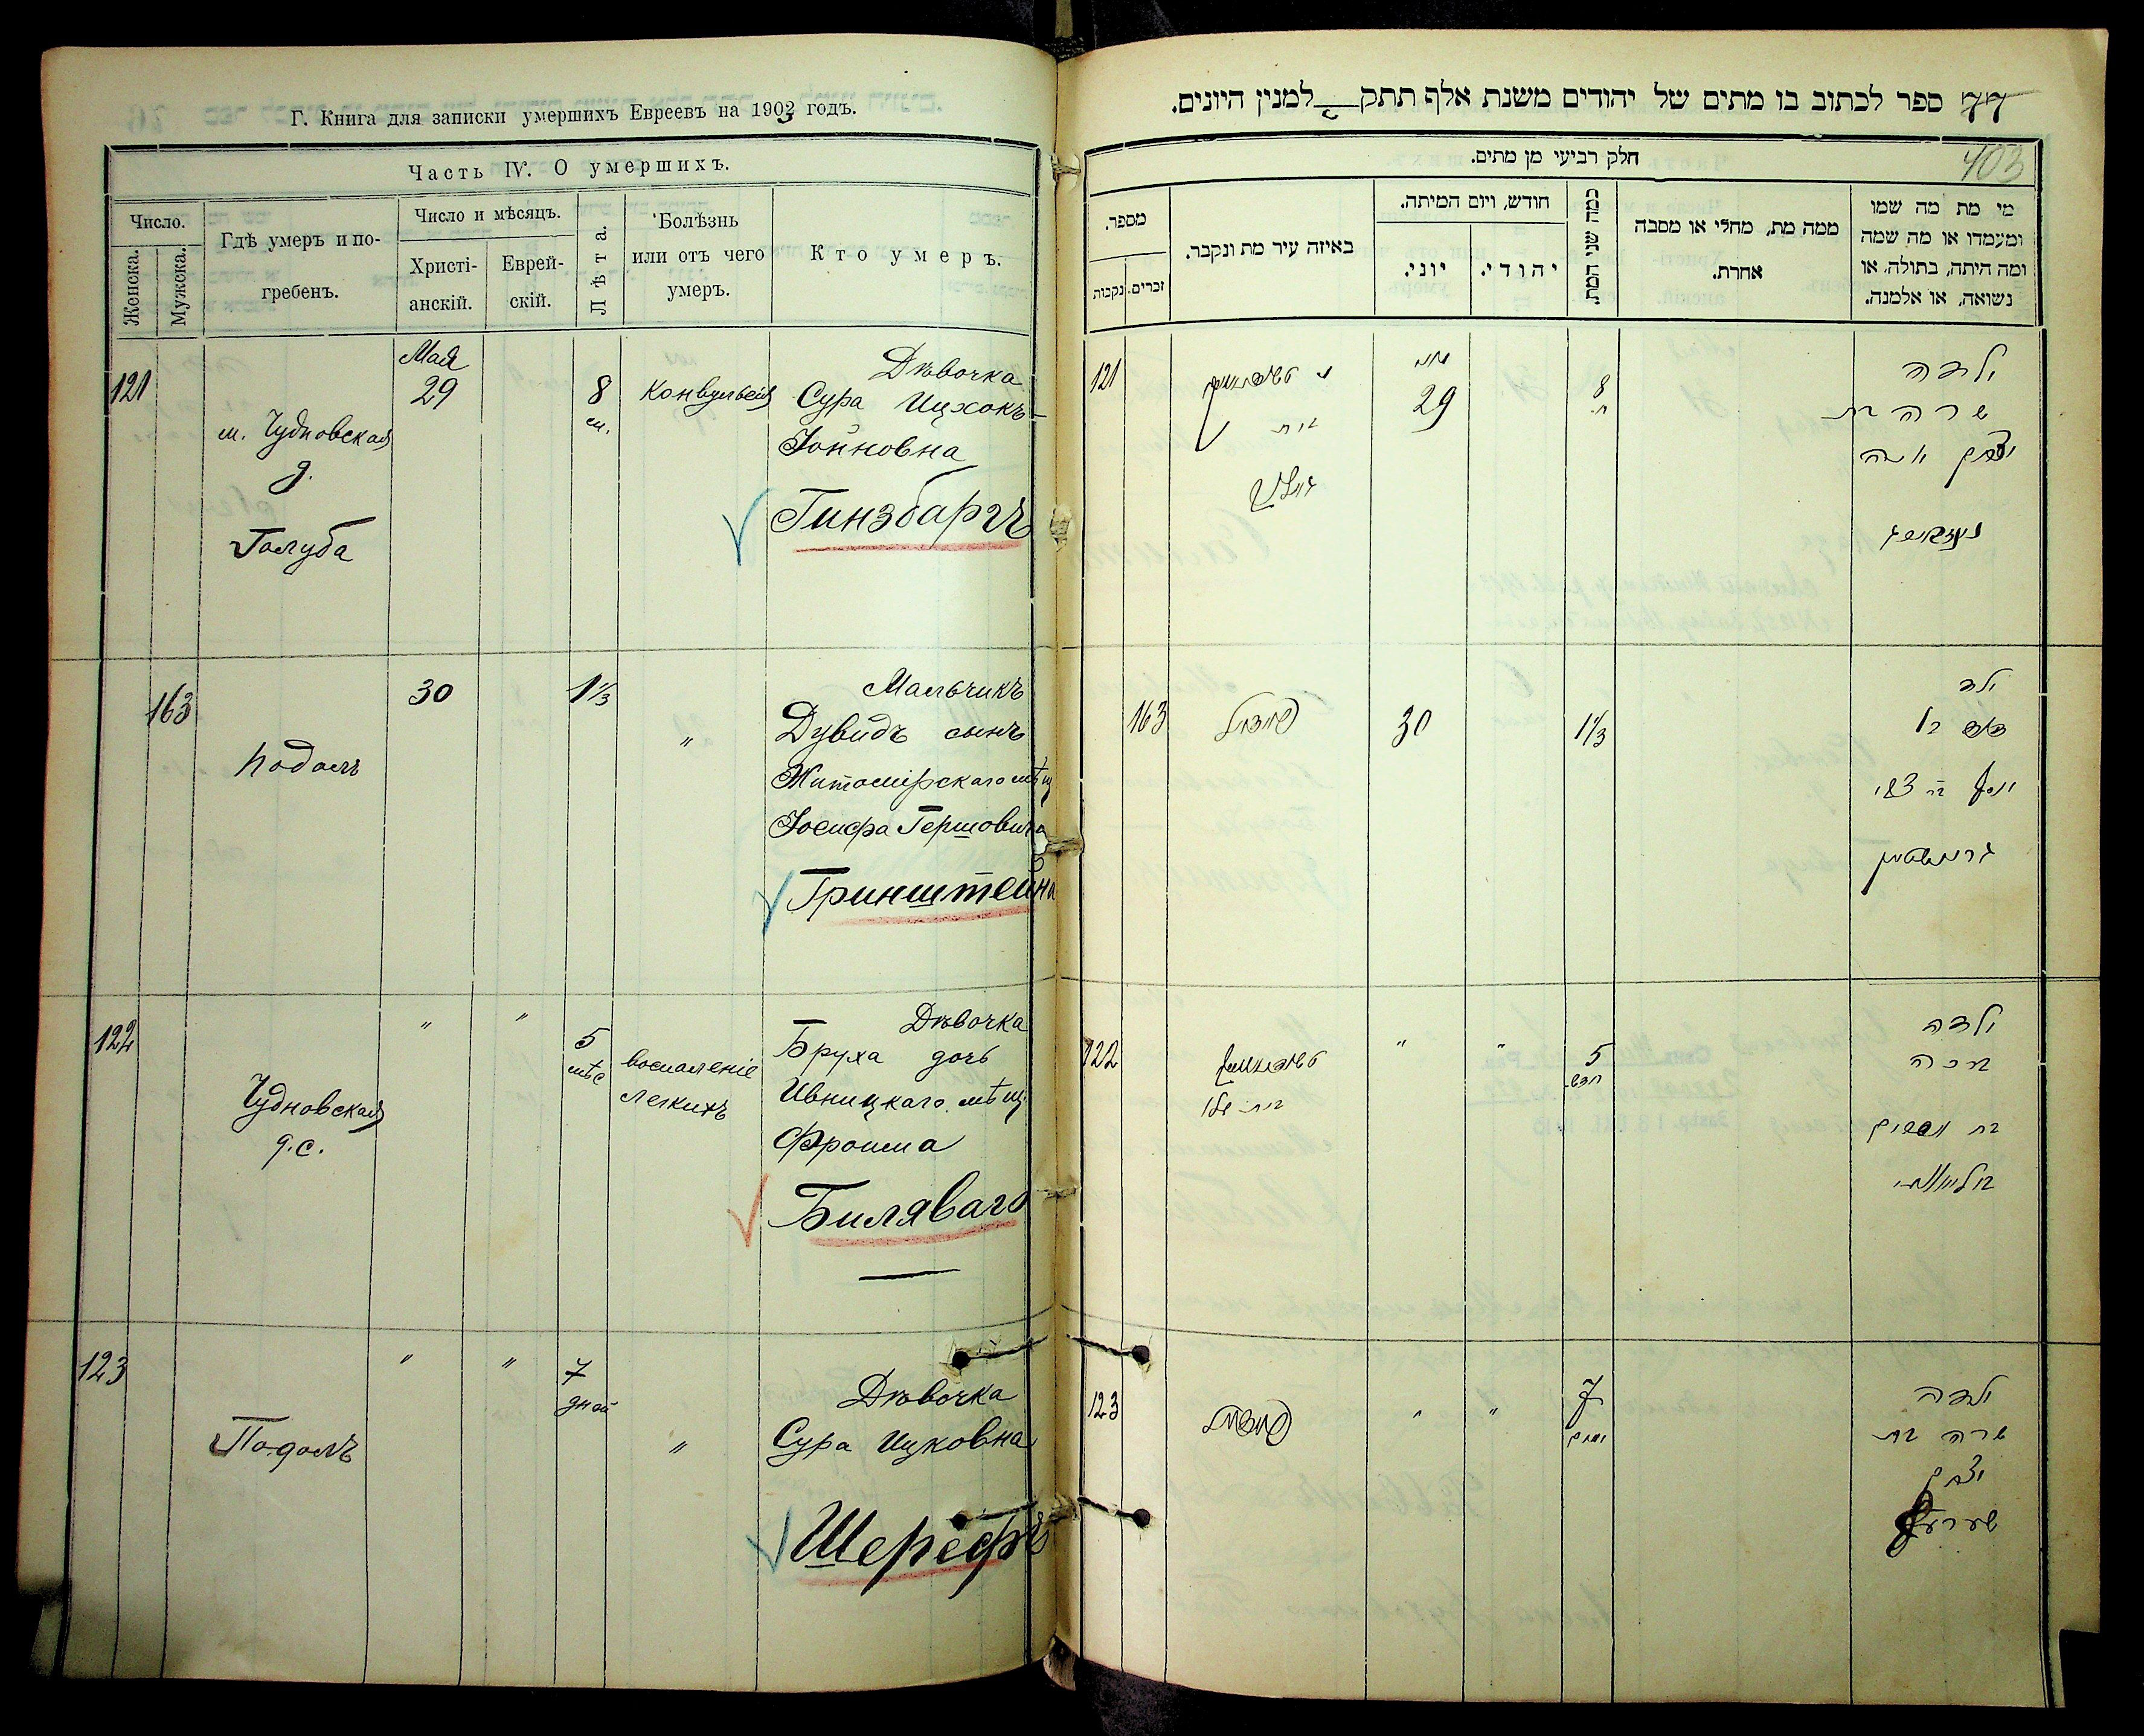 Г. Книга для записки умершихъ Евреевъ на 1903 годъ.
Часть IV. О умершихъ.
Число.
Женска.
Мужска.
Гдѣ умеръ и по-
гребенъ.
Число и мѣсяцъ.
Христі-
анскій.
Еврей-
скій.
Лѣта.
Болѣзнь
или отъ чего
умеръ.
Кто умеръ.
121
м. Чудновская
д.
Голуба
Мая
29
8
м.
Конвульсія
Дѣвочка
Сура Ицхокъ-
Іойновна
Гинзбаргъ
163
Подолъ
30
1 1/3
"
Мальчикъ
Дувидъ сынъ
Житомірскаго мѣщ
Іосифа Гершовича
Гринштейна
122
Чудновская
д.с.
"
"
5
мѣс
воспаленіе
легкихъ
Дѣвочка
Бруха дочь
Ивницкаго мѣщ.
Фроима
Биляваго
123
Подолъ
"
"
7
дней
"
Дѣвочка
Сура Ицковна
Шерефъ
77 ספר לכתוב בו מתים של יהודים משנת אלף תתק למנין היונים.
403
חלק רביעי מן מתים.
מי מת מה שמו
ומעמדו או מה שמה
ומה היתה, בתולה, או
נשואה, או אלמנה.
ממה מת, מחלי או מסבה
אחרת.
כמה שני המת.
חודש, ויום המיתה.
יהודי.
יוני.
באיזה עיר מת ונקבר.
מספר.
זכרים.
נקבות
121
מאי
29
8
ח.
ילדה
שרה בת
יצחק יונה
גינזבארג
163
פאדאל
30
1 1/3
ילד
דוד בן
יוסף בר צבי
גרינשטיין
122
"
"
5
חדש
ילדה
ברכה
בת אפרים
123
פאדאל
"
"
7
ימים
ילדה
שרה בת
יצחק
שערעף